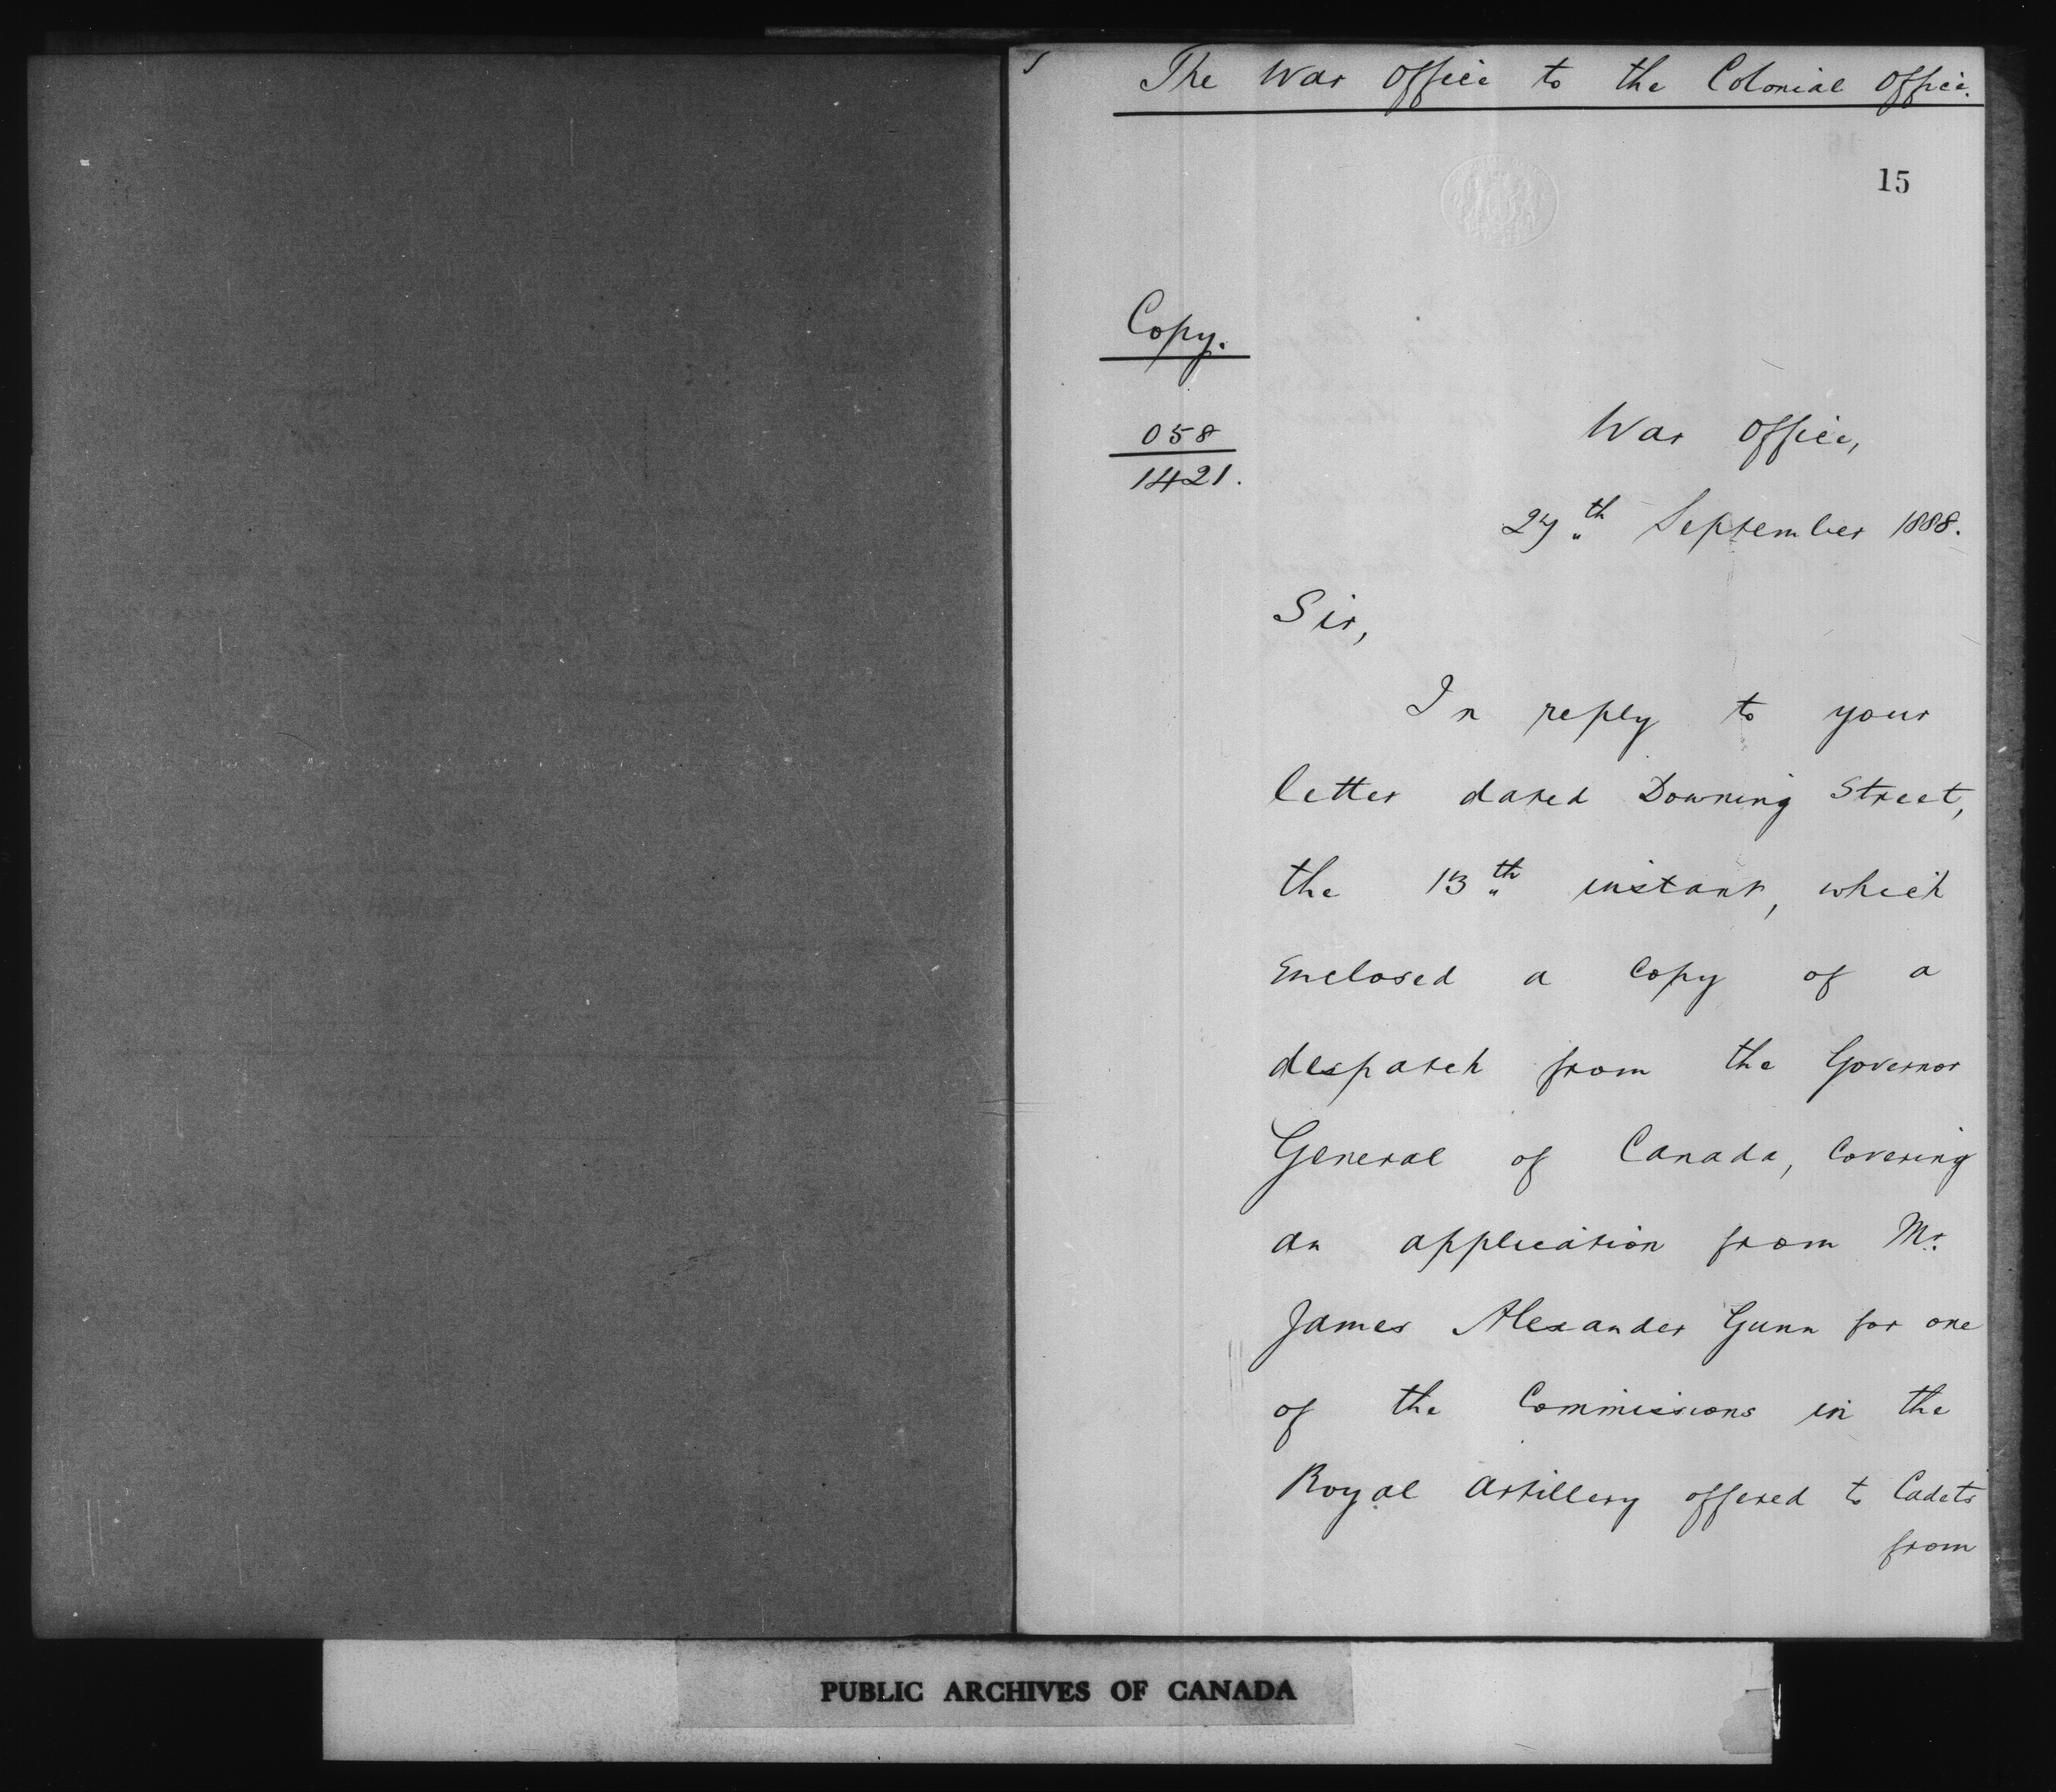 The War Office to the Colonial Office.
15
Copy.
058
1421.
War Office,
27th September 1888.
Sir,
In reply to your
letter dated Downing Street,
the 13th instant, which
enclosed a copy of a
despatch from the Governor
General of Canada, covering
an application from Mr.
James Alexander Gunn for one
of the Commissions in the
Royal Artillery offered to Cadets
from
PUBLIC ARCHIVES OF CANADA